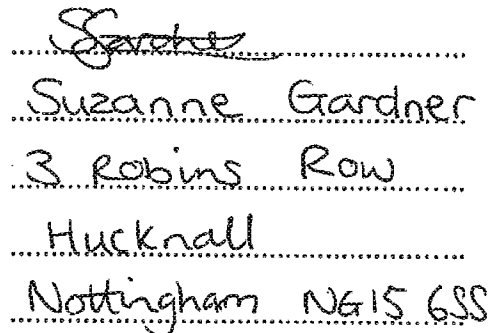 SGardner
Suzanne Gardner
3 Robins Row
Hucknall
Nottingham NG15 6SS